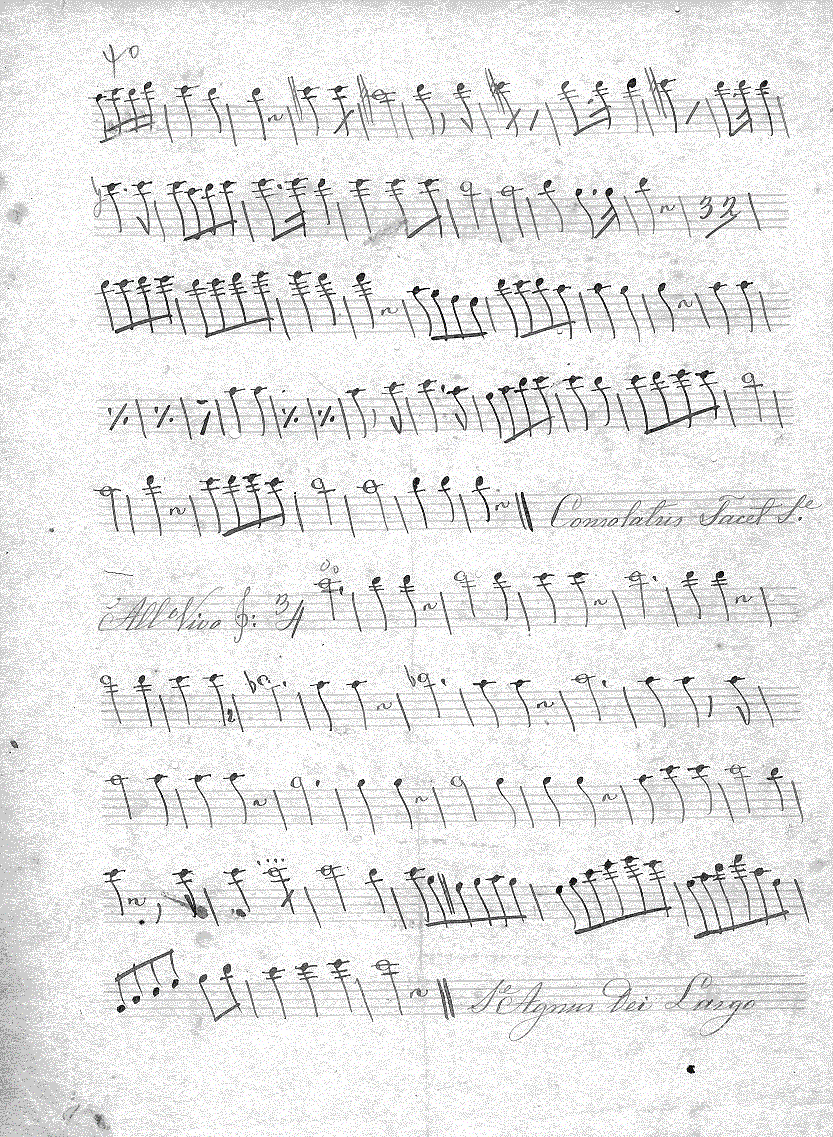 40
32
Consolatus Tacet Se
All° Vivo 3/4
2
Se Agnus Dei Largo